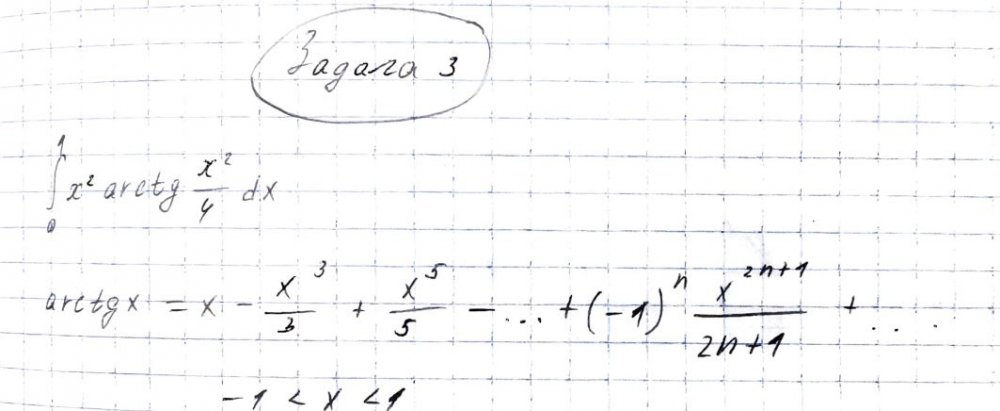 Задача 3
∫₀¹ x² arctg x²/4 dx
arctg x = x - x³/3 + x⁵/5 - ... + (-1)ⁿ x²ⁿ⁺¹/2n+1 + ....
-1 < x < 1